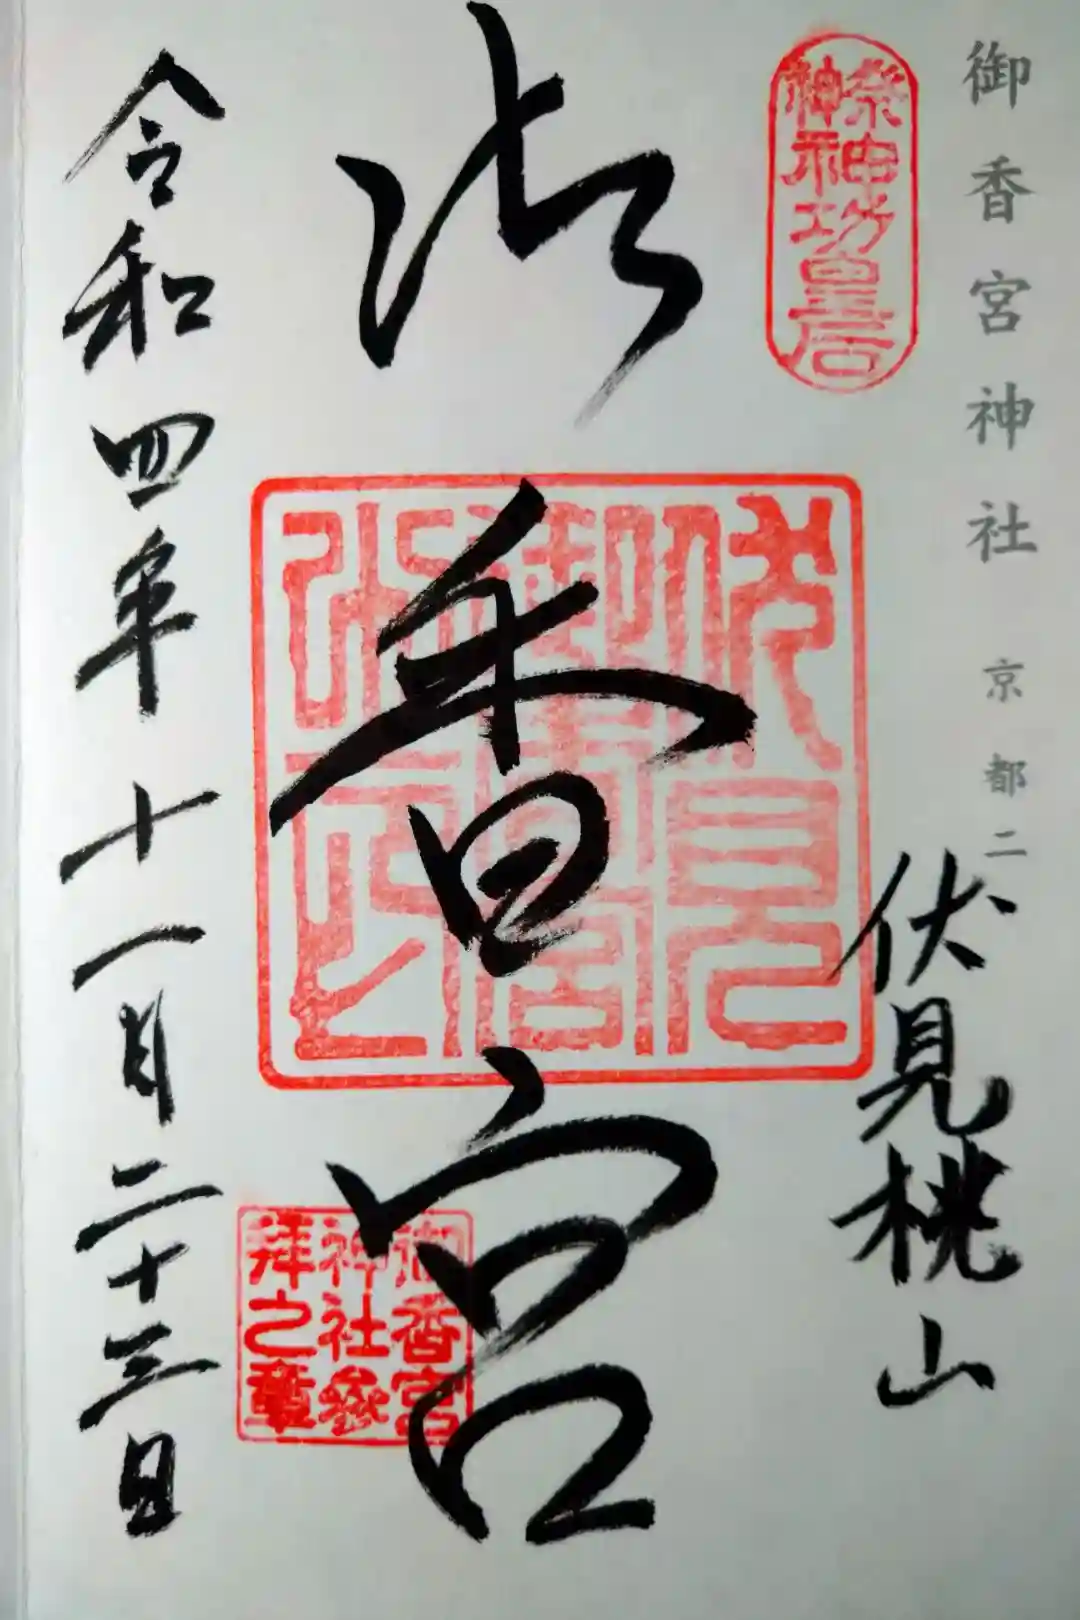 御香宮神社 京都二
伏見桃山
祭神
神功皇后
御香宮
伏見
御香宮
御香宮
神社參
拜之章
令和四年十一月二十三日